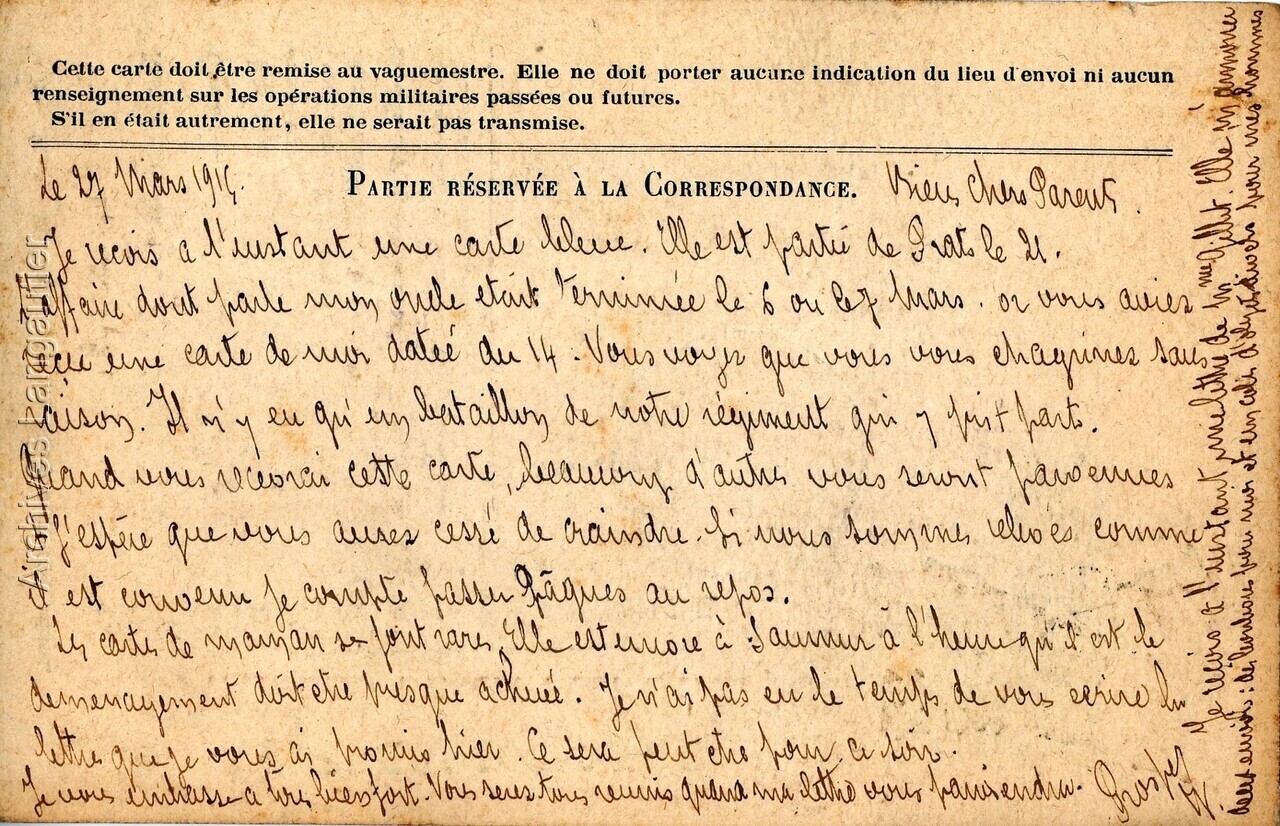 Cette carte doit être remise au vaguemestre. Elle ne doit porter aucune indication du lieu d'envoi ni aucun
renseignement sur les opérations militaires passées ou futures.
S'il en était autrement, elle ne serait pas transmise.
Le 27 Mars 1915. PARTIE RÉSERVÉE À LA CORRESPONDANCE. Biens Chers Parents.
Je reçois a l'instant une carte bleue. Elle est partie de Prats le 21.
L'affaire dont parle mon oncle était terminée le 6 ou le 7 Mars. or vous aviez
reçu une carte de moi datée du 14. Vous voyez que vous vous chagrinez sans
raison. Il n'y eu qu'un bataillon de notre régiment qui y prit part.
Quand vous recevrai cette carte, beaucoup d'autres vous seront parvennes
J'espère que vous aurez cessé de craindre. Si nous sommes relevés comme
il est convenu je compte passer Pâques au repos.
Les cartes de maman se font rares. Elle est encore à Saumur à l'heure qu'il est le
demenagement doit etre presque achevé. Je n'ai pas eu le temps de vous ecrire la
lettre que je vous ai promis hier. Ce sera peut etre pour ce soir.
Je vous embrasse a tous bien fort. Vous serez tous reunis quand ma lettre vous parviendra. Prosper
Je reçois à l'instant une lettre de Mme Gillet. Elle m'annonce
deux envois: des bonbons pour moi et un colis d'objets divers pour mes hommes
Archives Langautier